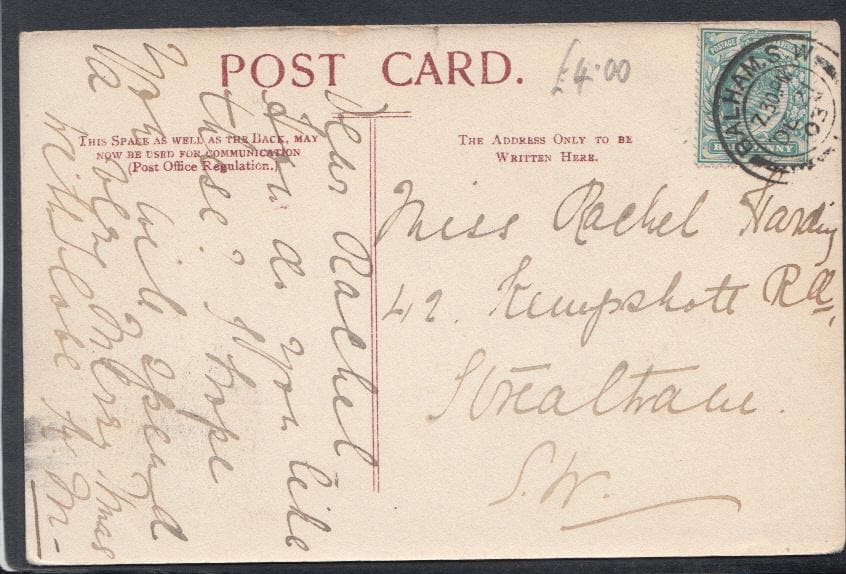 POST CARD.
£4.00
THIS SPACE AS WELL AS THE BACK, MAY
NOW BE USED FOR COMMUNICATION
(Post Office Regulation.)
THE ADDRESS ONLY TO BE
WRITTEN HERE.
POSTAGE REVENUE
HALFPENNY
BALHAM. S.W
7.30 PM
DE
03
Miss Rachel Harding
42. Kempshott Rd,
Streatham.
S.W.
Dear Rachel
How do you like
these? I hope
you will spend
a very Merry Xmas
with love fr M-